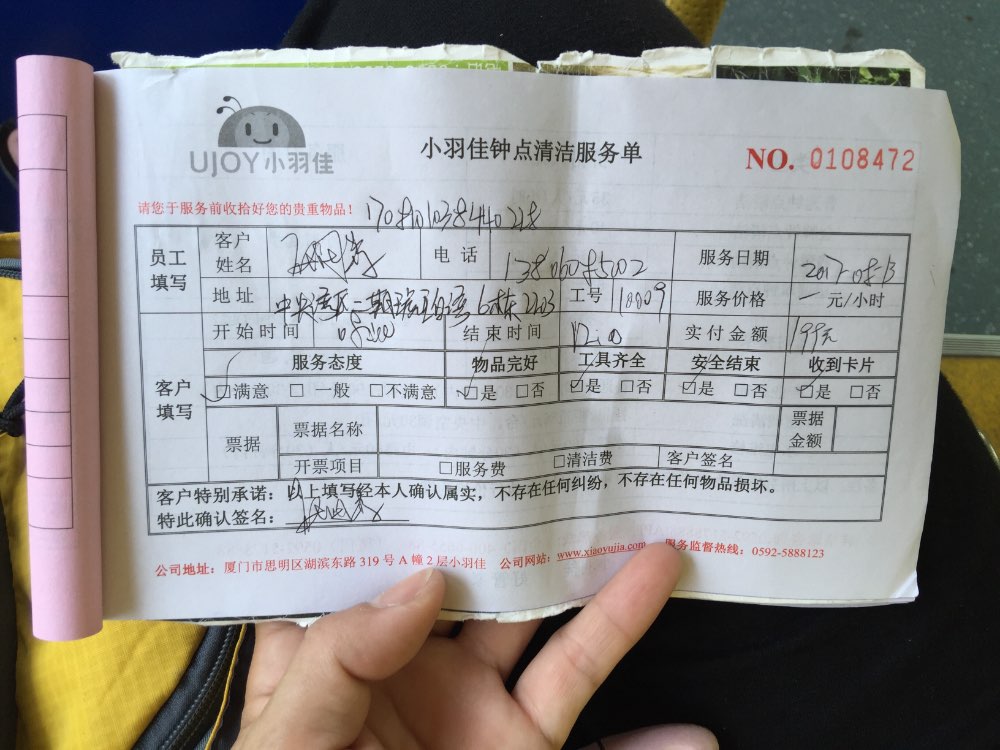 UJOY小羽佳
小羽佳钟点清洁服务单
NO. 0108472
请您于服务前收拾好您的贵重物品！
员工填写 客户姓名 电话 服务日期 2017-08-13
地址 工号 11809 服务价格 一 元/小时
客户填写 开始时间 结束时间 实付金额 199元
服务态度 物品完好 工具齐全 安全结束 收到卡片
□满意 □一般 □不满意 □是 □否 □是 □否 □是 □否 □是 □否
票据 票据名称 票据金额
开票项目 □服务费 □清洁费 客户签名
客户特别承诺：以上填写经本人确认属实，不存在任何纠纷，不存在任何物品损坏。
特此确认签名：
公司地址：厦门市思明区湖滨东路 319 号 A 幢 2 层小羽佳 公司网站：www.xiaoyujia.com 服务监督热线：0592-5888123